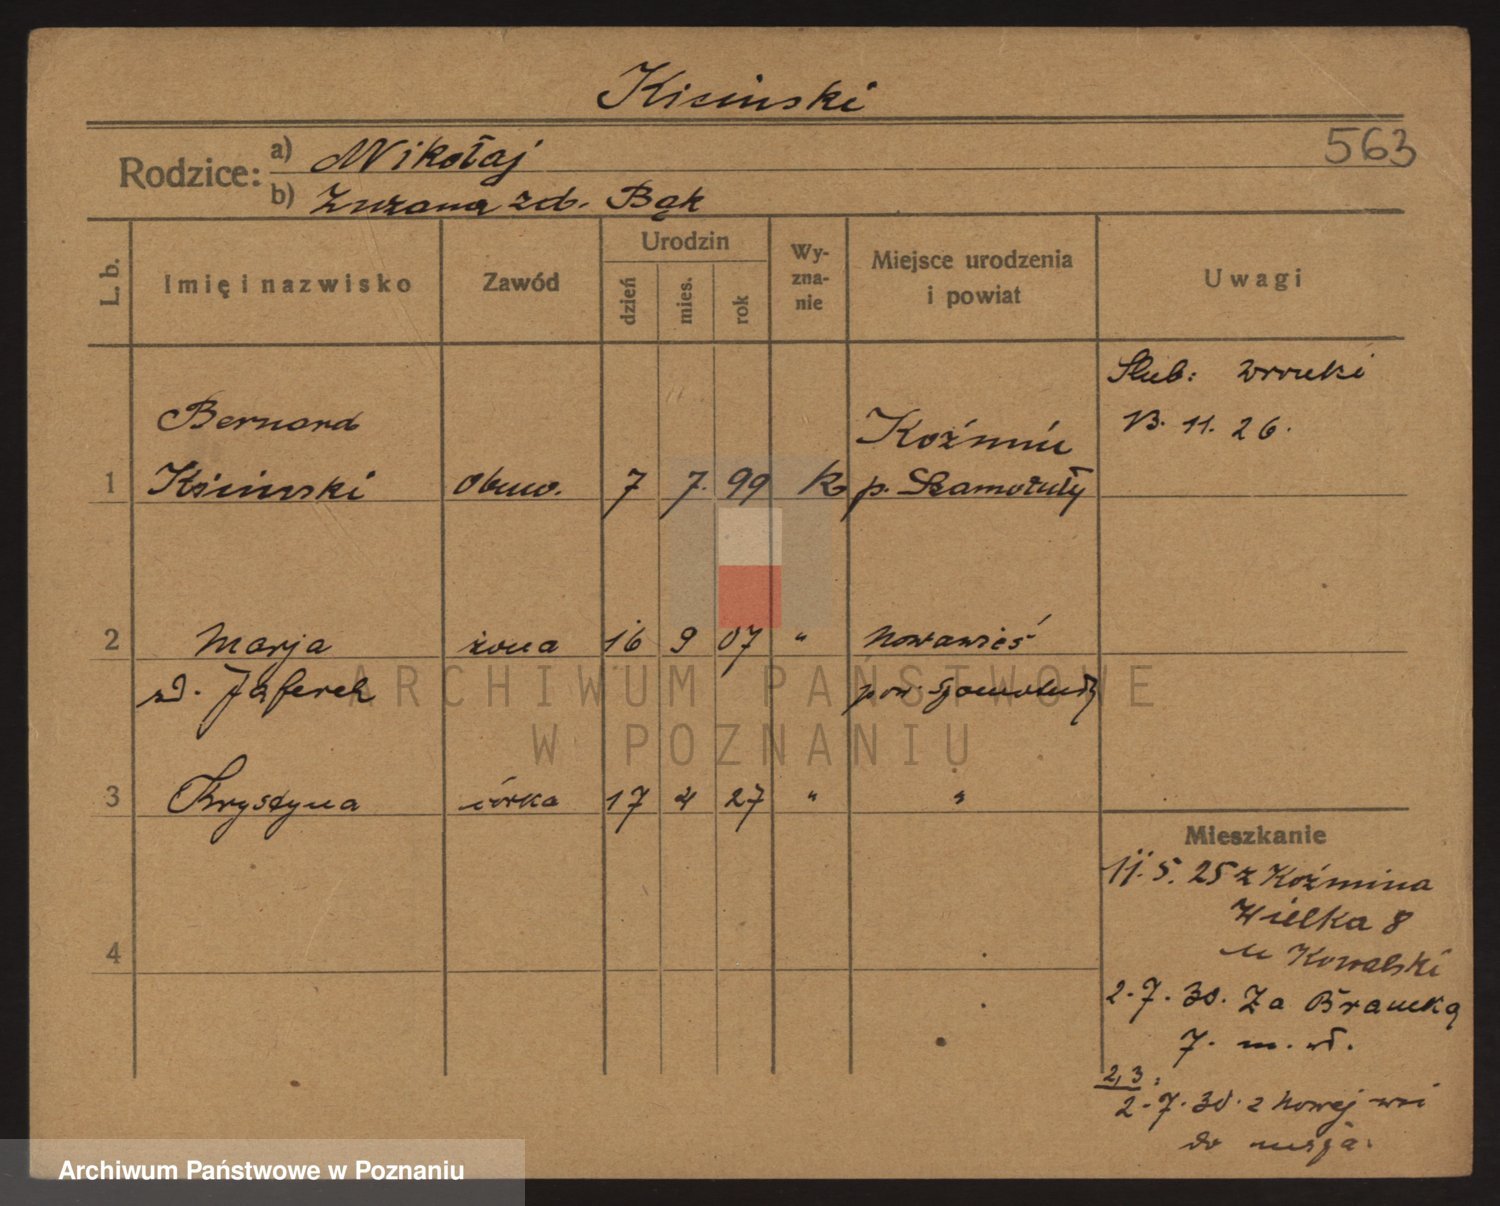 Kisinski
563
Rodzice: a) Mikołaj
b) Zuzana zd. Bąk
L. b.
Imię i nazwisko
Zawód
Urodzin
dzień
mies.
rok
Wy-
zna-
nie
Miejsce urodzenia
i powiat
Uwagi
Ślub: Wronki
13. 11. 26.
Bernard
Koźmin
1 Kisinski obuw. 7 7. 99 k p. Szamotuły
2 Marja żona 16 9 07 " Nowawieś
zd. Jaferek pow. Szamotuły
3 Krystyna córka 17 4 27 " "
4
Mieszkanie
11. 5. 25 z Koźmina
Wielka 8
u Kowalski
2. 7. 30. Za Bramką
7. m. wł.
2, 3:
2. 7. 30. z Nowej wsi
do męża.
ARCHIWUM PAŃSTWOWE
W POZNANIU
Archiwum Państwowe w Poznaniu